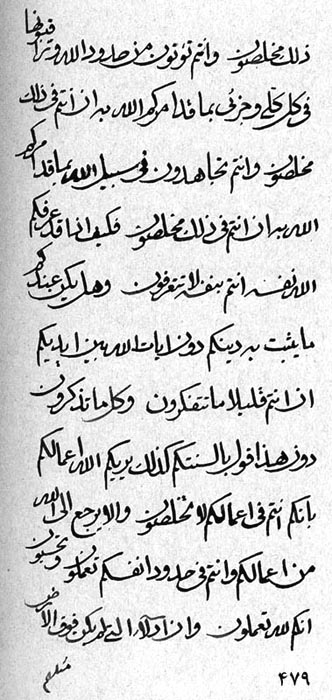 ذلك مخلصون وانتم توتون من حدود الله وتراقبونها
في كل كلي وجزئي بما قد امركم الله به ان انتم في ذلك
مخلصون وانتم تجاهدون في سبيل الله بما قد امركم
الله به ان انتم في ذلك مخلصون فكيف انما قد عرفكم
الله نفسه انتم بنفسه لا تتعرفون وهل يكن عندكم
ما يثبت به دينكم دون ايات الله بين ايديكم
ان انتم قليلا ما تتفكرون وكل ما تذكرون
دون هذا قول بالسنتكم كذلك يريكم الله اعمالكم
بانكم انتم في اعمالكم لا تخلصون والا يرجع الى الله
من اعمالكم وانتم في حدود انفسكم تعملون وتحسبون
انكم لله تعملون وان لم يكن فوق الارض
٤٧٩